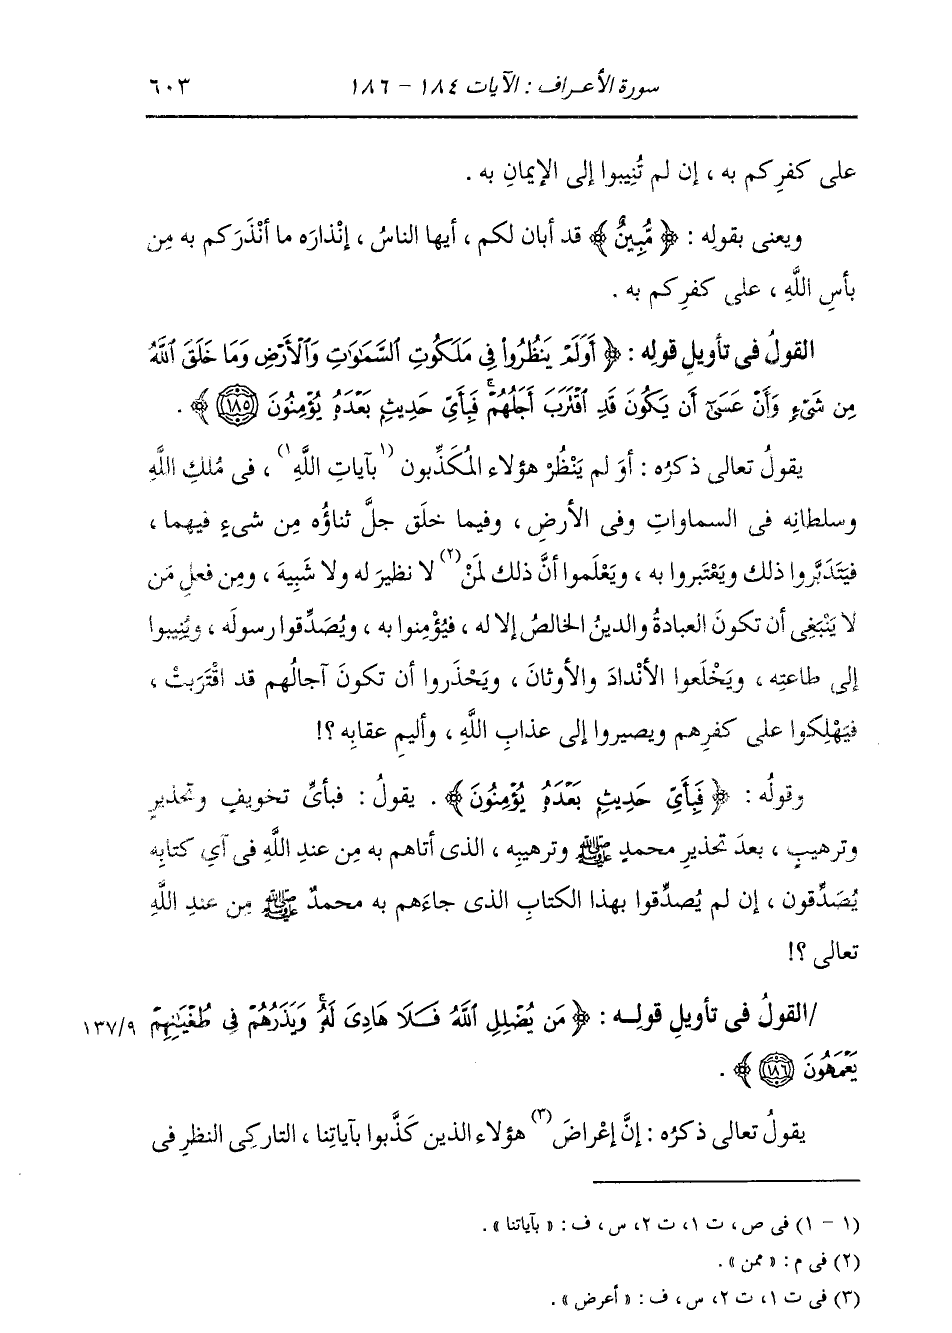 سورة الأعراف : الآيات ١٨٤ - ١٨٦ ٦٠٣
على كفرِكم به ، إن لم تُنِيبوا إلى الإيمانِ به .
ويعنى بقولِه : ﴿ مُّبِينٌ ﴾ قد أبان لكم ، أيها الناسُ ، إنْذارَه ما أنْذَرَكم به مِن
بأسِ اللَّهِ ، على كفرِكم به .
القولُ فى تأويلِ قولِه : ﴿ أَوَلَمْ يَنظُرُوا۟ فِى مَلَكُوتِ ٱلسَّمَـٰوَٰتِ وَٱلْأَرْضِ وَمَا خَلَقَ ٱللَّهُ
مِن شَىْءٍ وَأَنْ عَسَىٰٓ أَن يَكُونَ قَدِ ٱقْتَرَبَ أَجَلُهُمْ ۖ فَبِأَىِّ حَدِيثٍۭ بَعْدَهُۥ يُؤْمِنُونَ ١٨٥ ﴾ .
يقولُ تعالى ذكرُه : أوَ لم يَنْظُرْ هؤلاء المُكَذِّبون (١ بآياتِ اللَّهِ ١) ، فى مُلكِ اللَّهِ
وسلطانِه فى السماواتِ وفى الأرضِ ، وفيما خلَق جلَّ ثناؤُه مِن شىءٍ فيهما ،
فيَتَدَبَّروا ذلك ويَعْتَبِروا به ، ويَعْلَموا أنَّ ذلك لمَنْ (٢) لا نظيرَ له ولا شَبِيهَ ، ومِن فعلِ مَن
لا يَنْبَغِى أن تكونَ العبادةُ والدينُ الخالصُ إلا له ، فيُؤْمِنوا به ، ويُصَدِّقوا رسولَه ، ويُنِيبوا
إلى طاعتِه ، ويَخْلَعوا الأنْدادَ والأوثانَ ، ويَحْذَروا أن تكونَ آجالُهم قد اقْتَرَبتْ ،
فيَهْلِكوا على كفرِهم ويصيروا إلى عذابِ اللَّهِ ، وأليمِ عقابِه ؟!
وقولُه : ﴿ فَبِأَىِّ حَدِيثٍۭ بَعْدَهُۥ يُؤْمِنُونَ ﴾ . يقولُ : فبأىِّ تخويفٍ وتحذيرٍ
وترهيبٍ ، بعدَ تحذيرِ محمدٍ ﷺ وترهيبِه ، الذى أتاهم به مِن عندِ اللَّهِ فى آىِ كتابِه
يُصَدِّقون ، إن لم يُصدِّقوا بهذا الكتابِ الذى جاءَهم به محمدٌ ﷺ مِن عندِ اللَّهِ
تعالى ؟!
/القولُ فى تأويلِ قولِه : ﴿ مَن يُضْلِلِ ٱللَّهُ فَلَا هَادِىَ لَهُۥ ۚ وَيَذَرُهُمْ فِى طُغْيَـٰنِهِمْ ١٣٧/٩
يَعْمَهُونَ ١٨٦ ﴾ .
يقولُ تعالى ذكرُه : إنَّ إعْراضَ (٣) هؤلاء الذين كَذَّبوا بآياتِنا ، التاركِى النظرِ فى
(١ - ١) فى ص ، ت ١، ت ٢، س ، ف : « بآياتنا » .
(٢) فى م : « ممن » .
(٣) فى ت ١، ت ٢، س ، ف : « أعرض » .